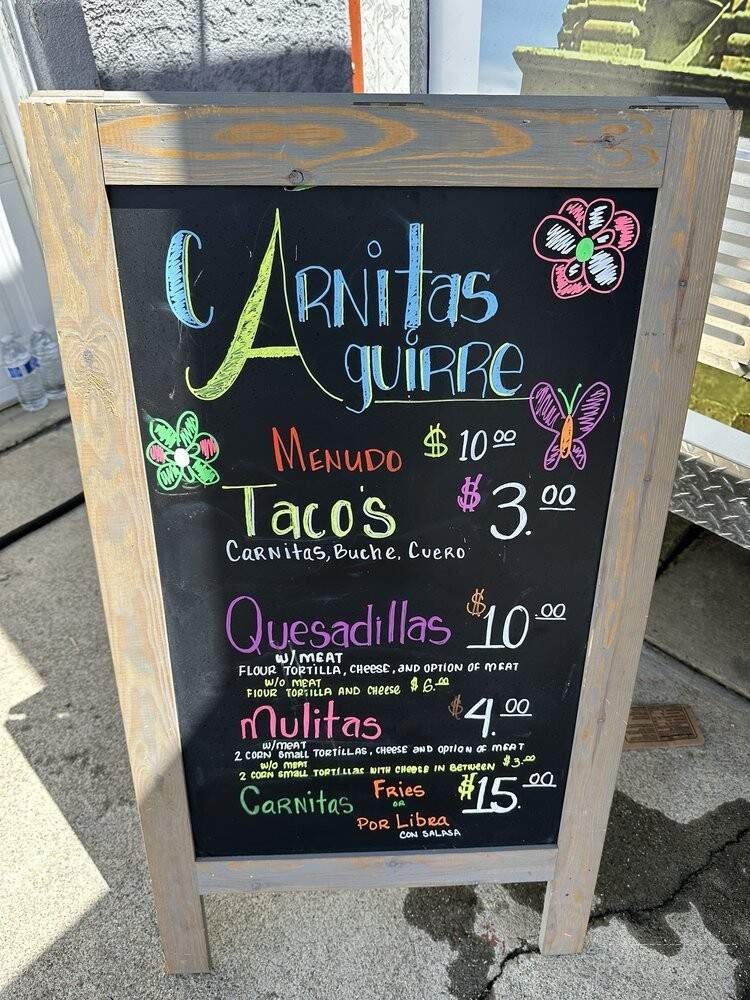 CARNitas
Aguirre
MENUDO $ 10.00
Taco's $ 3.00
CARNitas, Buche, Cuero
Quesadillas $ 10.00
w/MEAT
FLOUR TORTILLA, CHEESE, AND OPTION OF MEAT
W/O MEAT
FlOUR TORTILLA AND CHEESE $ 6.00
Mulitas $ 4.00
w/MEAT
2 CORN SMALL TORTILLAS, CHEESE AND OPTION OF MEAT
W/O MEAT $3.00
2 CORN SMALL TORTILLAS WITH CHEESE IN BETWEEN
CARNitas Fries $15.00
OR
POR LibRA
CON SALASA